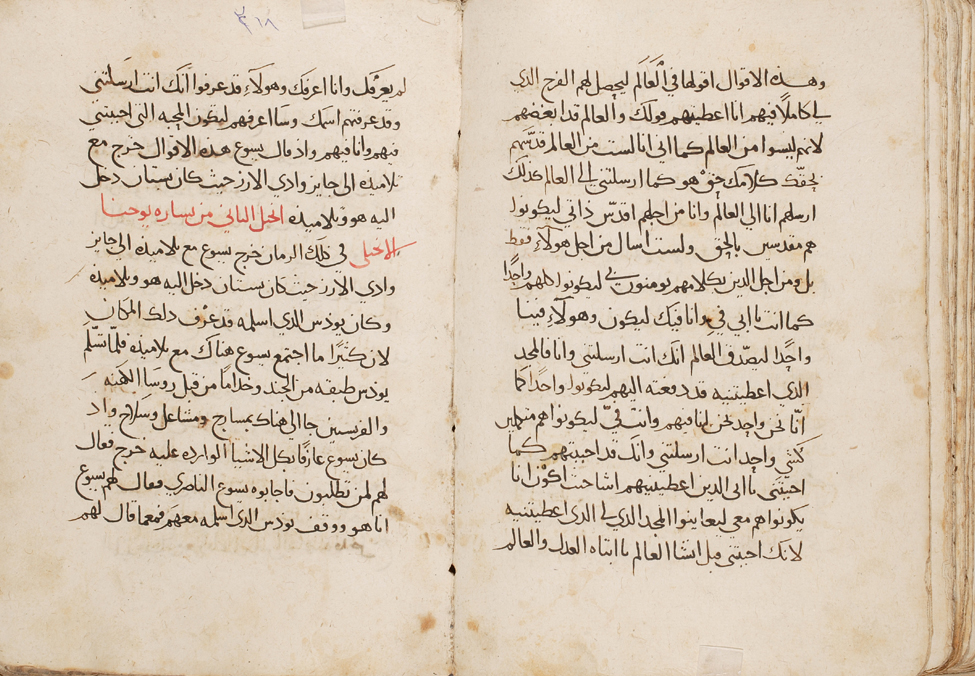 وهذه الاقوال اقولها في العالم ليحصل لهم الفرح الذي
لي كاملًا فيهم انا اعطيتهم قولك والعالم قد ابغضهم
لانهم ليسوا من العالم كما اني انا لست من العالم قدّسهم
بحقّك كلامك حق هو كما ارسلتني الى العالم كذلك
ارسلهم انا الى العالم وانا من اجلهم اقدّس ذاتي ليكونوا
هم مقدسين بالحق ولست اسال من اجل هولاء فقط
بل ومن اجل الذين بكلامهم يومنون بي ليكونوا كلهم واحدًا
كما انت يا ابي فيّ وانا فيك ليكون وهولاء فينا
واحدًا ليصدّق العالم انك انت ارسلتني وانا فالمجد
الذي اعطيتنيه قد دفعته اليهم ليكونوا واحدًا كما
انّا نحن واحد نحن انا فيهم وانت فيّ ليكونوا هم متكملين
كشي واحد انت ارسلتني وانك قد احببتهم كما
احببتني يا ابي الذين اعطيتنيهم اشا حيث اكون انا
يكونوا هم معي ليعاينوا المجد الذي لي الذي اعطيتنيه
لانك احببتني قبل انشا العالم يا ابتاه العدل والعالم
٣١٨
لم يعرفك وانا اعرفك وهولاء قد عرفوا انك انت ارسلتني
وقد عرفتهم اسمك وسا اعرفهم لتكون المحبه التي احببتني
فيهم وانا فيهم واذ قال يسوع هذه الاقوال خرج مع
تلاميذه الى جايز وادي الارز حيث كان بستان دخل
اليه هو وتلاميذه الانجيل الثاني من بشاره يوحنا
الانجيلي في ذلك الزمان خرج يسوع مع تلاميذه الى جايز
وادي الارز حيث كان بستان دخل اليه هو وتلاميذه
وكان يوذس الذي اسلمه قد عرف ذلك المكان
لان كثيرًا ما اجتمع يسوع هناك مع تلاميذه فلما تسلّم
يوذس طبقه من الجند وخدامًا من قبل روسا الكهنه
والفريسيين جا الى هناك بمصابيح ومشاعل وسلاح واذ
كان يسوع عارفًا بكل الاشيا الوارده عليه خرج فقال
لهم لمن تطلبون فاجابوه يسوع الناصري فقال لهم يسوع
انا هو ووقف يوذس الذي اسلمه معهم فمعما قال لهم